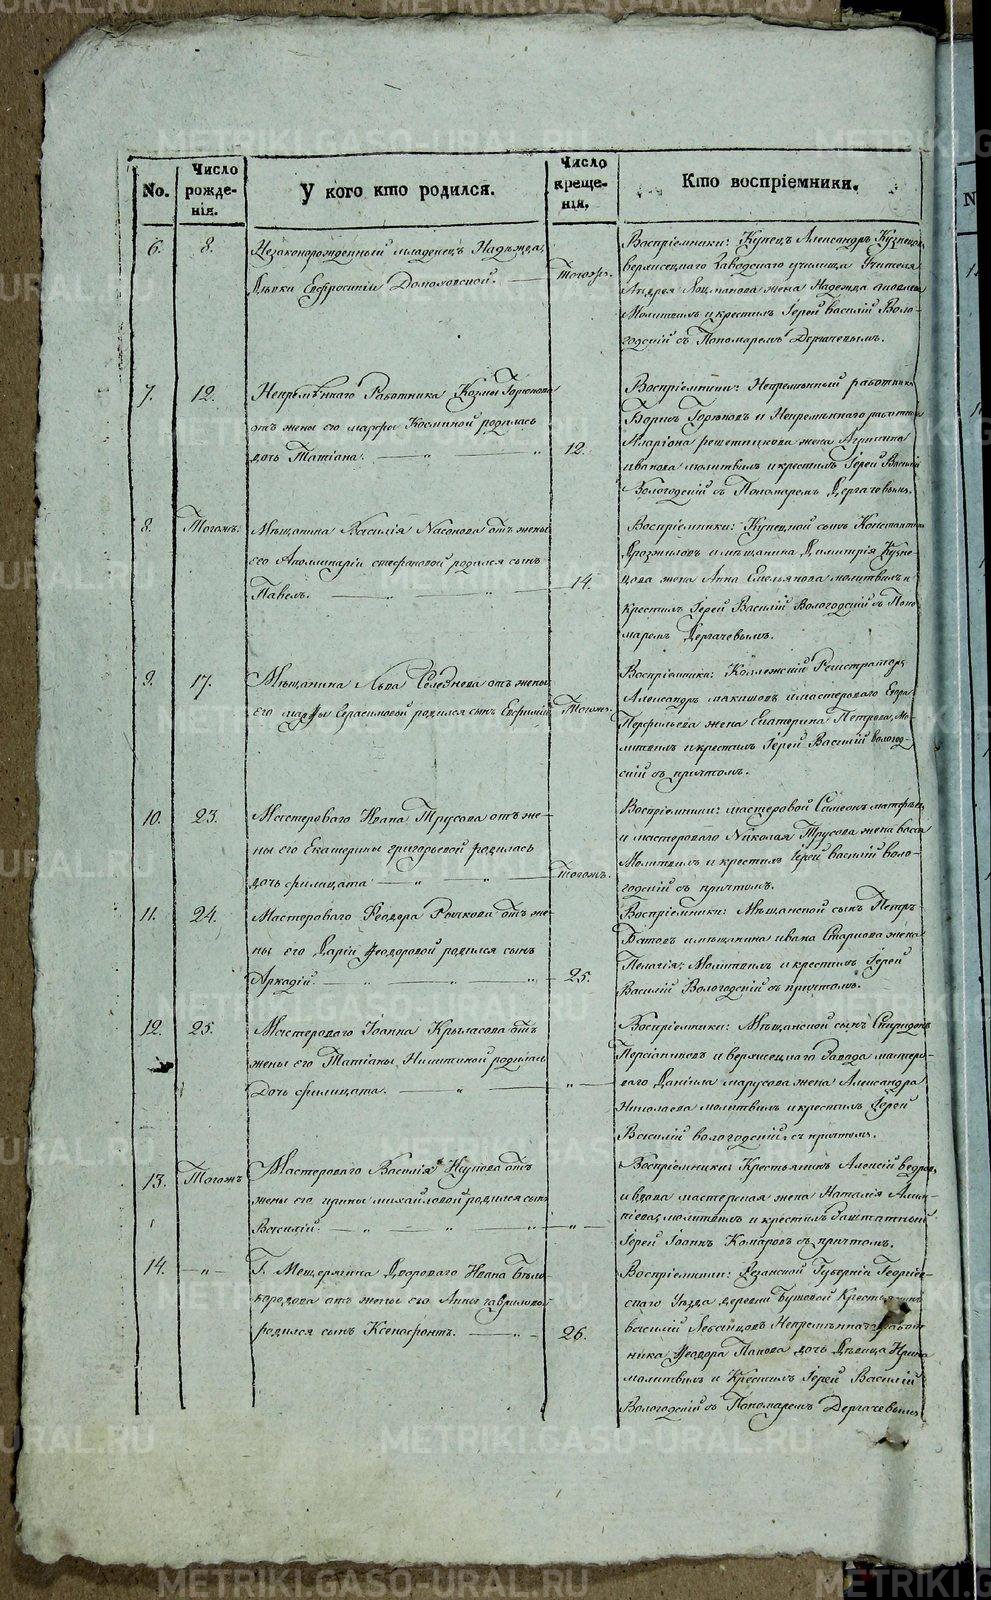 No.
Число рожде-
нія.
У кого кто родился.
Число креще-
нія.
Кто воспріемники.
6. 8. Незаконорожденный младенецъ Надѣжда,
Дѣвки Евфросиніи
Тогожъ.
Воспріемники: Купецъ Александръ Кузнецовъ
заводскаго училища Учителя
Андрея жена Надежда
Молитвилъ и крестилъ Іерей Василій Воло-
годскій съ Пономаремъ Дергачевымъ.
7. 12. Непремѣннаго Работника Козмы Горюнова
отъ жены его Марфы Косминой родилась
дочь Татіана.
12.
Воспріемники: Непремѣнный работникъ
Горюновъ и Непремѣннаго работника
Иларіона Решетникова жена
Иванова молитвилъ и крестилъ Іерей Василій
Вологодскій съ Пономаремъ Дергачевымъ.
8. Тогожъ. Мѣщанина Василія Насонова отъ жены
его Аполинаріи Стефановой родился сынъ
Павелъ.
14.
Воспріемники: Купецкой сынъ Константинъ
Дрозжиловъ и мѣщанина Димитрія Кузне-
цова жена Анна Емельянова молитвилъ и
крестилъ Іерей Василій Вологодскій съ Поно-
маремъ Дергачевымъ.
9. 17. Мѣщанина Льва Селезнева отъ жены
его Марфы Герасимовой родился сынъ Евфимій
Тогожъ.
Воспріемники: Коллежскій Регистраторъ
Александръ и мастероваго Егора
Перфильева жена Екатерина Петрова, Мо-
литвилъ и крестилъ Іерей Василій Вологод-
скій съ причтомъ.
10. 23. Мастероваго Ивана Трусова отъ же-
ны его Екатерины Григорьевой родилась
дочь Филицата
Тогожъ.
Воспріемники: мастеровой Симеонъ
и мастероваго Николая Трусова жена Васса
Молитвилъ и крестилъ Іерей Василій Воло-
годскій съ причтомъ.
11. 24. Мастероваго Феодора Рычкова отъ же-
ны его Даріи Феодоровой родился сынъ
Аркадій.
25.
Воспріемники: Мѣщанской сынъ Петръ
и мѣщанина Ивана Старцова жена
Пелагія; Молитвилъ и крестилъ Іерей
Василій Вологодскій съ причтомъ.
12. 25. Мастероваго Іоанна Крыласова отъ
жены его Татіаны Никитиной родилась
Дочь Филицата.
Воспріемники: Мѣщанской сынъ Спиридонъ
и завода мастеро-
ваго Даніила жена Александра
Николаева молитвилъ и крестилъ Іерей
Василій Вологодскій съ причтомъ.
13. Тогожъ Мастероваго Василія Наумова отъ
жены его Ирины Михайловой родился сынъ
Василій.
Воспріемники: Крестьянинъ Алексій
и вдова мастерская жена Наталія
молитвилъ и крестилъ заштатный
Іерей Іоаннъ Комаровъ съ причтомъ.
14. Г. Мещерягина Двороваго Ивана Бѣло-
бородова отъ жены его Анны Гавриловой
родился сынъ Ксенофонтъ.
26.
Воспріемники: Рязанской Губерніи
Уѣзда деревни Бутовой Крестьянинъ
Василій Непремѣннаго работ-
ника Феодора Попова дочь Дѣвица Ирина
молитвилъ и Крестилъ Іерей Василій
Вологодскій съ Пономаремъ Дергачевымъ
METRIKI.GASO-URAL.RU